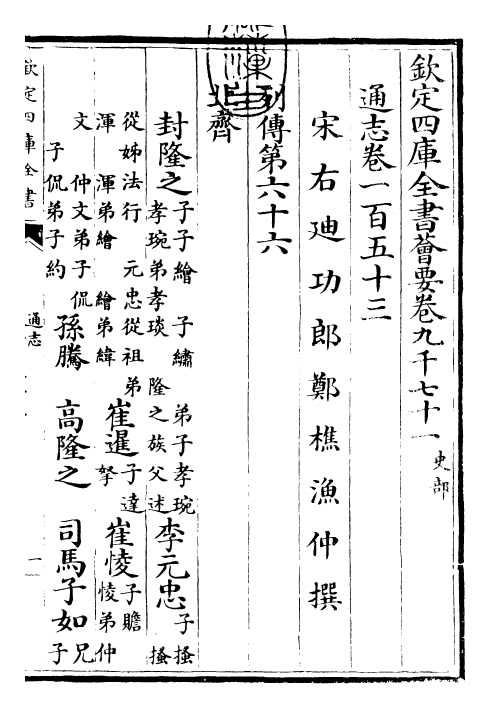 欽定四庫全書薈要卷九千七十一 史部
通志卷一百五十三
宋右迪功郎鄭樵漁仲撰
列傳第六十六
北齊
封隆之 子子繪 子繡 弟子孝琬 孝琬弟孝琰 隆之族父述 李元忠 子搔 搔
從姊法行 元忠從祖弟渾 渾弟繪 繪弟緯 崔暹 子達拏 崔㥄 子贍 㥄弟仲
文 仲文弟子侃 子侃弟子約 孫騰 高隆之 司馬子如 兄子
欽定四庫全書
通志
一